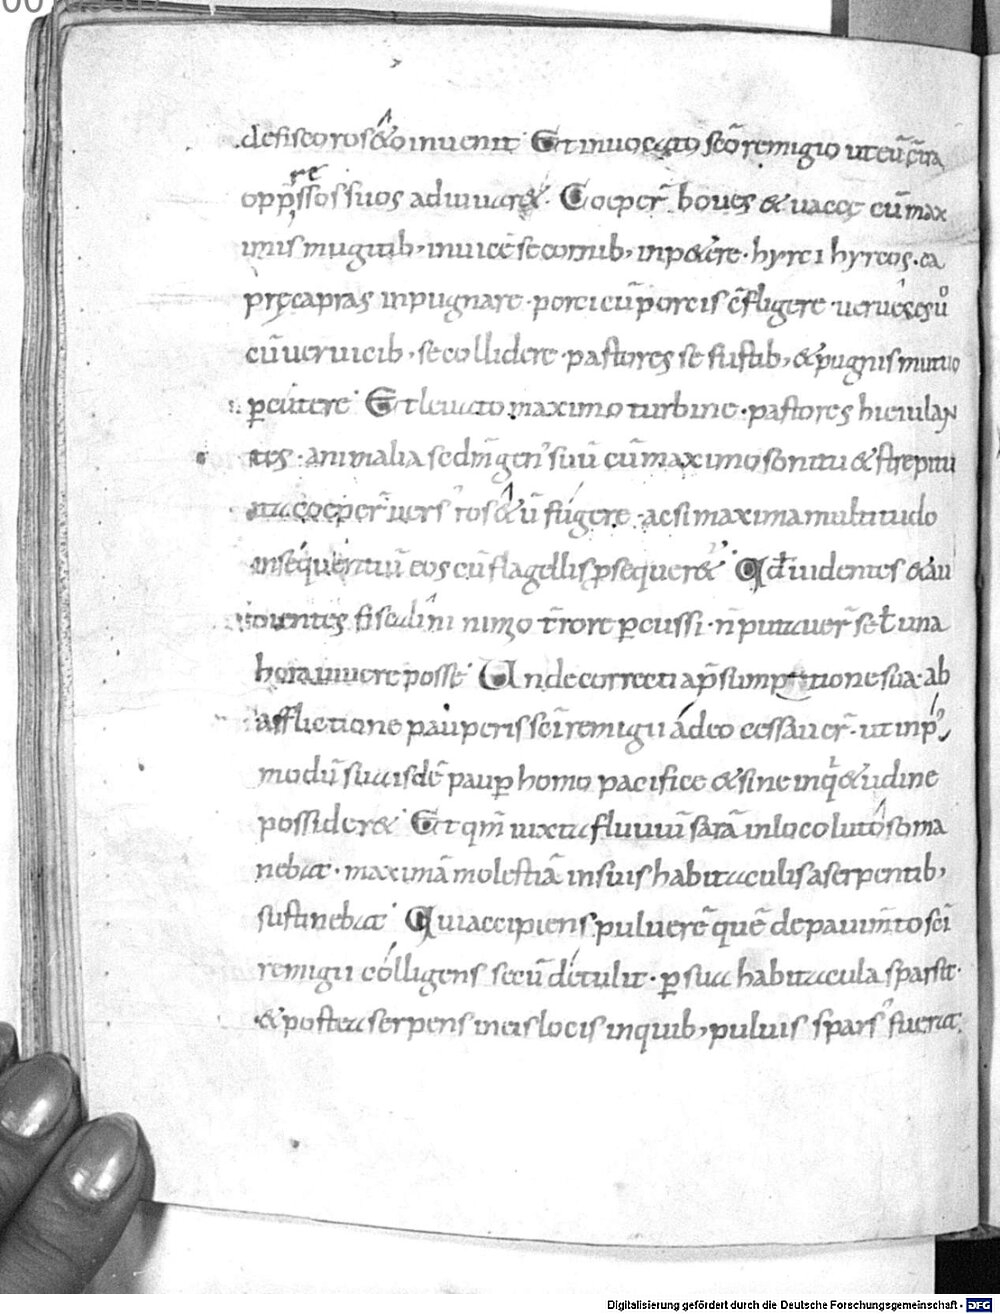 de fisco ros&o inuenit Et inuocato scō remigio ut eū c̄tra
opp̄ssos suos adiuuar& Coeper̄ boues & uacce cū max
imis mugitib; inuicē se cornib; inp&ere · hyrci hyrcos · ca
pre capras inpugnare · porci cū porcis c̄fligere · ueruéces ů
cū ueruicib; se collidere · pastores se fustib; & pugnis mutuo
ꝑcutere Et leuato maximo turbine · pastores hi eiulan
tes · animalia sed̄m gen' suū cū maximo sonitu & strepitu
ita coeper̄ uers' ros&ū fugere · ac si maxima multitudo
insequentiū eos cū flagellis ꝑsequer& Qđ uidentes & au
dientes fiscalini nimio t̄rore ꝑcussi · n̄ putauer̄ se ł una
hora uiuere posse Unde correcti a p̄sumptione sua · ab
afflictione pauperis sci remigii adeo cessauer̄ · ut in p̄
modū sua isdē pauꝑ homo pacifice & sine inq'&udine
possider& Et qm̄ iuxta fluuiū sarā in loco lutoso ma
nebat · maximā molestiā in suis habitaculis a serpentib;
sustinebat Qui accipiens puluerē quē de pauim̄to sci
remigii colligens secū detulit · ꝑ sua habitacula sparsit ·
& postea serpens in eis locis in quib; puluis spars' fuerat ·
Digitalisierung gefördert durch die Deutsche Forschungsgemeinschaft - DFG